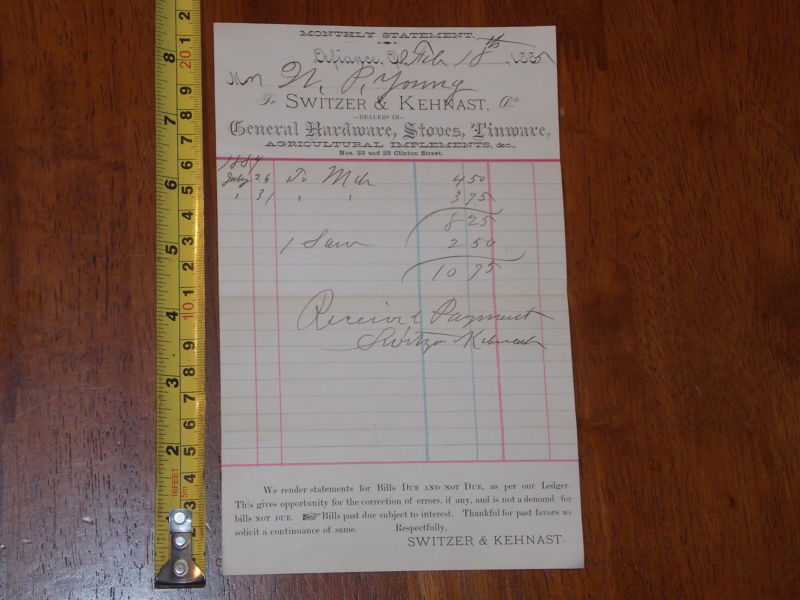 MONTHLY STATEMENT.
Defiance, O., Feb 18th 1885
M W. P. Young
To SWITZER & KEHNAST, Dr.
—DEALERS IN—
General Hardware, Stoves, Tinware,
AGRICULTURAL IMPLEMENTS, &c.,
Nos. 23 and 25 Clinton Street.
1884
July 26 To Mdse 4 50
" 31 " " 3 75
8 25
1 Saw 2 50
10 75
Received Payment
Switzer Kehnast
We render statements for Bills DUE AND NOT DUE, as per our Ledger.
This gives opportunity for the correction of errors, if any, and is not a demand for
bills NOT DUE. ☞Bills past due subject to interest. Thankful for past favors we
solicit a continuance of same. Respectfully,
SWITZER & KEHNAST.
8
7
6
5
4
3
2
20
10
16FEET
5m